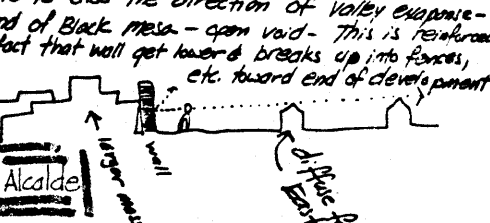 the direction of valley expanse-
nd of Black mesa - open void - This is reinforced
fact that wall get lower & breaks up into fences,
etc. toward end of development
wall
larger
diffuse
East
Alcalde